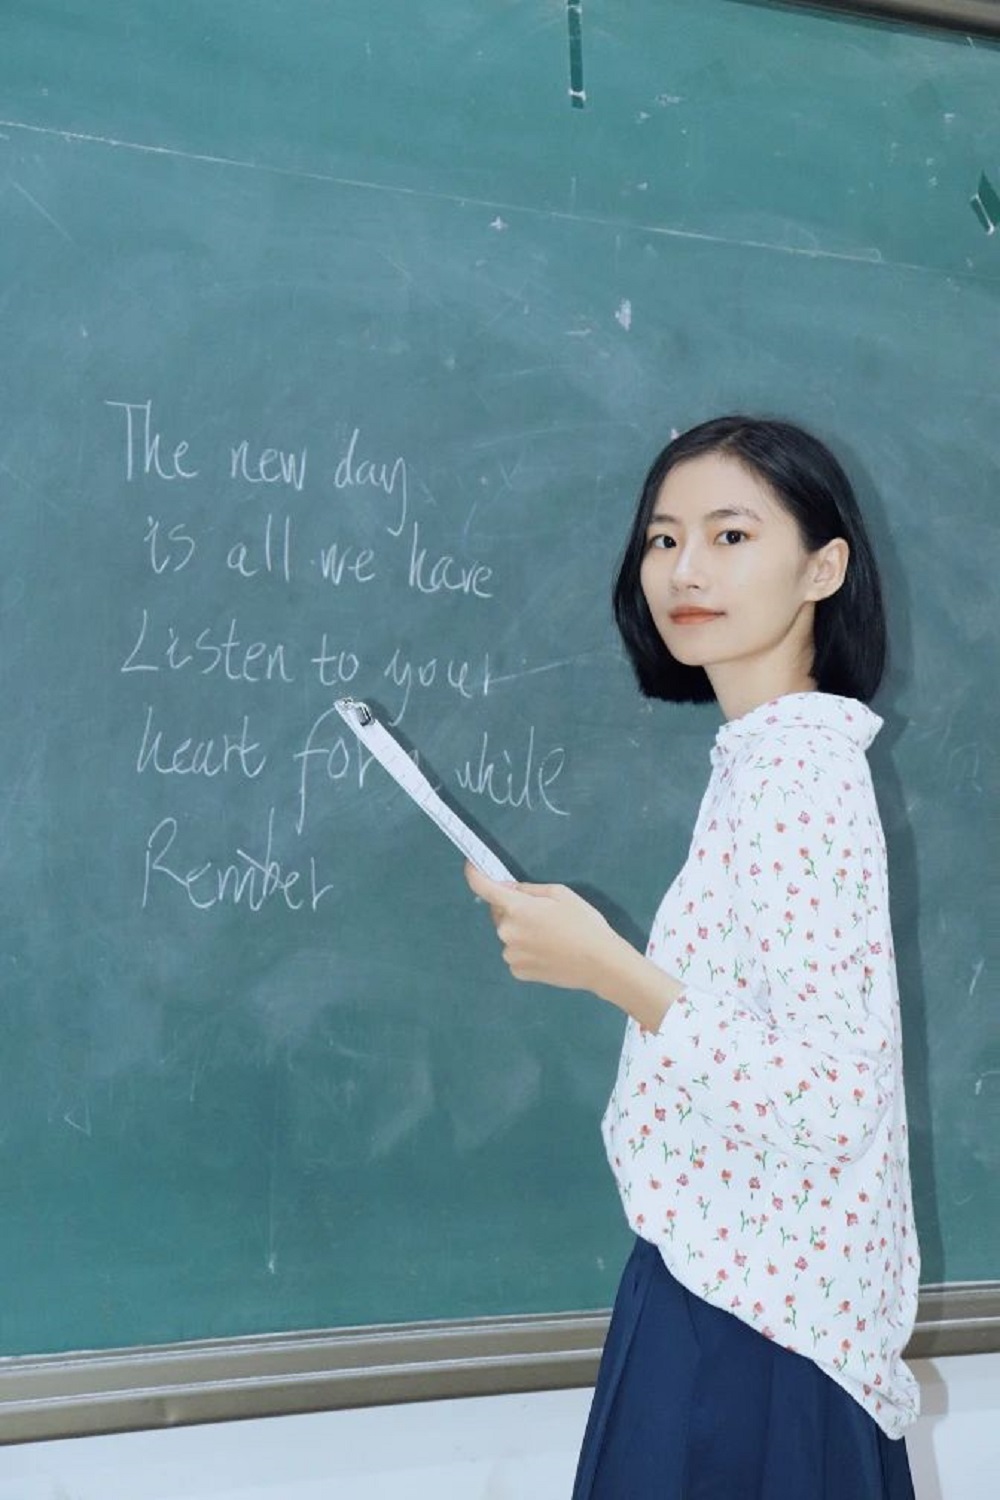 The new day
is all we have
Listen to your
heart for while
Rember